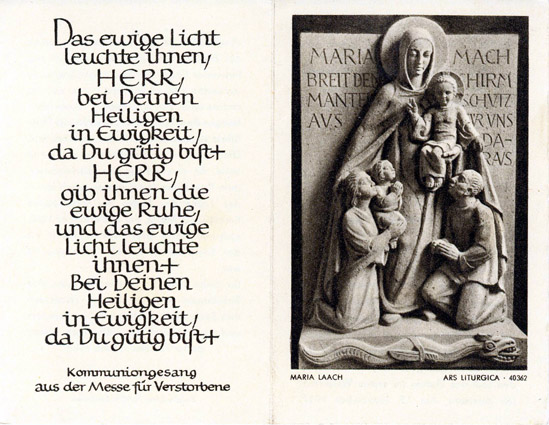 Das ewige Licht
leuchte ihnen,
HERR,
bei Deinen
Heiligen
in Ewigkeit,
da Du gütig bist+
HERR,
gib ihnen die
ewige Ruhe,
und das ewige
Licht leuchte
ihnen+
Bei Deinen
Heiligen
in Ewigkeit,
da Du gütig bist+
Kommuniongesang
aus der Messe für Verstorbene
MARIA MACH
BREIT DEN CHIRM
MANTE SCHVTZ
AVS VNS
DA-
RAVS
MARIA LAACH ARS LITURGICA · 40362